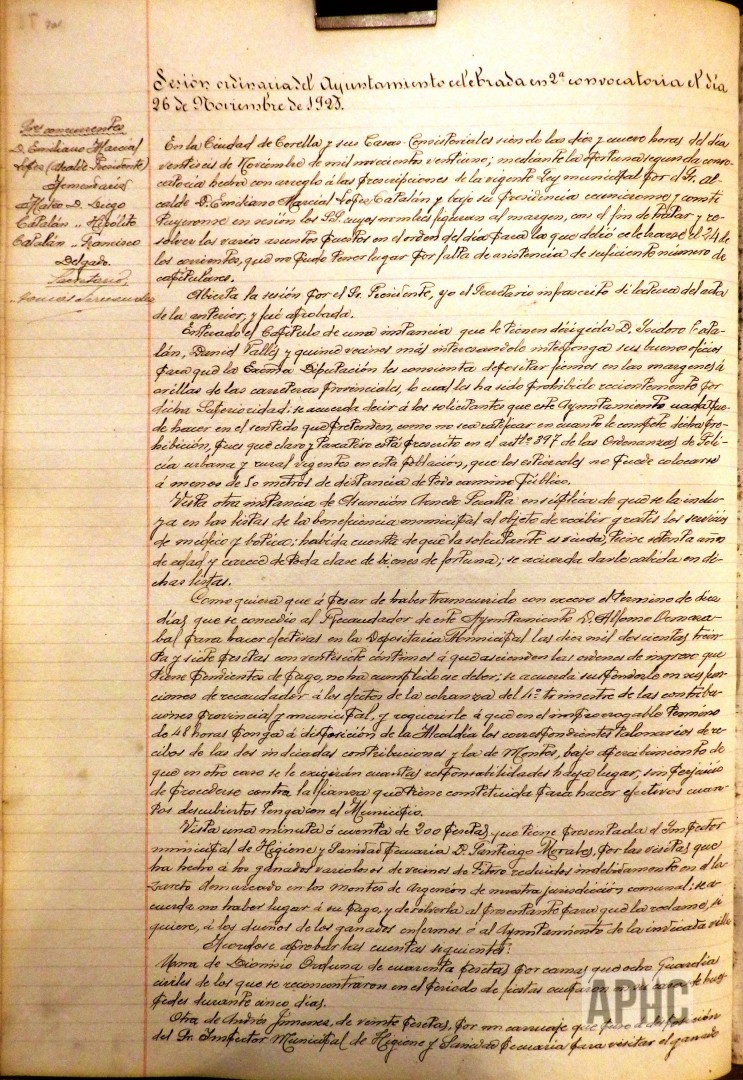 Sesión ordinaria del Ayuntamiento celebrada en 2ª convocatoria el día
26 de Noviembre de 1921.
Sres concurrentes
D. Emiliano Marcial
López (Alcalde Presidente)
Mateo D. Diego
Catalán " Hipólito
Catalán " Francisco
Delgado.
Secretario,
En la Ciudad de Corella y sus Casas Consistoriales siendo las diez y nueve horas del día
veintiseis de Noviembre de mil novecientos veintiuno; mediante la oportuna segunda convo-
catoria hecha con arreglo á las prescripciones de la vigente Ley municipal por el Sr. Al-
calde D. Emiliano Marcial López Catalán y bajo su Presidencia reunieronse y consti-
tuyeronse en sesión los SS. cuyos nombres figuran al margen, con el fin de tratar y re-
solver los varios asuntos puestos en el orden del día para la que debió celebrarse el 24 de
los corrientes, que no pudo tener lugar por falta de asistencia de suficiente número de
capitulares.
Abierta la sesión por el Sr. Presidente, yo el Secretario infrascrito dí lectura del acta
de la anterior, y fué aprobada.
Enterado el Capítulo de una instancia que le tienen dirigida D. Isidoro Cata-
lán, Daniel Vallés y quince vecinos más interesandole interponga sus buenos oficios
para que la Excma Diputación les consienta depositar fiemos en las margenes ú
orillas de las carreteras provinciales, lo cual les ha sido prohibido recientemente por
dicha Superioridad: se acuerda decir á los solicitantes que este Ayuntamiento nada pue-
de hacer en el sentido que pretenden, como no sea ratificar en cuanto le compete dicha pro-
hibición, pues que claro y taxativo está prescrito en el artº 897 de las Ordenanzas de Poli-
cía urbana y rural vigentes en esta población, que los estiercoles no puede colocarse
á menos de 50 metros de distancia de todo camino público.
Vista otra instancia de Asunción Arnedo Peralta en súplica de que se la inclu-
ya en las listas de la beneficencia municipal al objeto de recibir gratis los servicios
de médico y botica; habida cuenta de que la solicitante es viuda, tiene setenta años
de edad y carece de toda clase de bienes de fortuna; se acuerda darle cabida en di-
chas listas.
Como quiera que á pesar de haber transcurrido con exceso el termino de diez
días que se concedió al Recaudador de este Ayuntamiento D. Alfonso
para hacer efectivas en la Depositaria Municipal las diez mil doscientas trein-
ta y siete pesetas con veintisiete céntimos á que ascienden las ordenes de ingreso que
tiene pendientes de pago, no ha cumplido ese deber; se acuerda suspenderlo en sus fun-
ciones de recaudador á los efectos de la cobranza del 4º trimestre de las contribu-
ciones provincial y municipal, y requerirle á que en el improrrogable termino
de 48 horas ponga á disposición de la Alcaldía los correspondientes talonarios de re-
cibos de las dos indicadas contribuciones y la de Montes, bajo apercibimiento de
que en otro caso se le exigirán cuantas responsabilidades haya lugar, sin perjuicio
de procederse contra la fianza que tiene constituida para hacer efectivos cuan-
tos descubiertos tenga con el Municipio.
Vista una minuta ó cuenta de 200 pesetas que tiene presentada el Inspector
municipal de Higiene y Sanidad Pecuaria D. Santiago Morales, por las visitas que
ha hecho á los ganados variolosos de vecinos de Fitero recluidos indebidamente en el la-
zareto demarcado en los montes de Argenzón de nuestra jurisdicción comunal: se a-
cuerda no haber lugar á su pago, y devolverla al presentante para que la reclame, si
quiere, á los dueños de los ganados enfermos ó al Ayuntamiento de la indicada villa.
Acordose aprobar las cuentas siguientes:
Una de Dionisio Orduna de cuarenta pesetas por camas que ocho Guardias
civiles de los que se reconcentraron en el periodo de fiestas ocuparon en su casa de hues-
pedes durante cinco días.
Otra de Andrés Jimenez, de veinte pesetas, por un carruaje que puso á disposición
del Sr. Inspector Municipal de Higiene y Sanidad Pecuaria para visitar el ganado
APHC